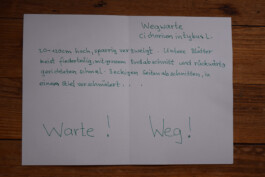 Wegwarte
Cichorium intybus L.
hoch, sparrig verzweigt. Untere Blätter
meist fiederteilig, mit grossem Endabschnitt und rückwärts
gerichteten schmal-3eckigen Seitenabschnitten, in
einem Stiel verschmälert...
Warte! Weg!